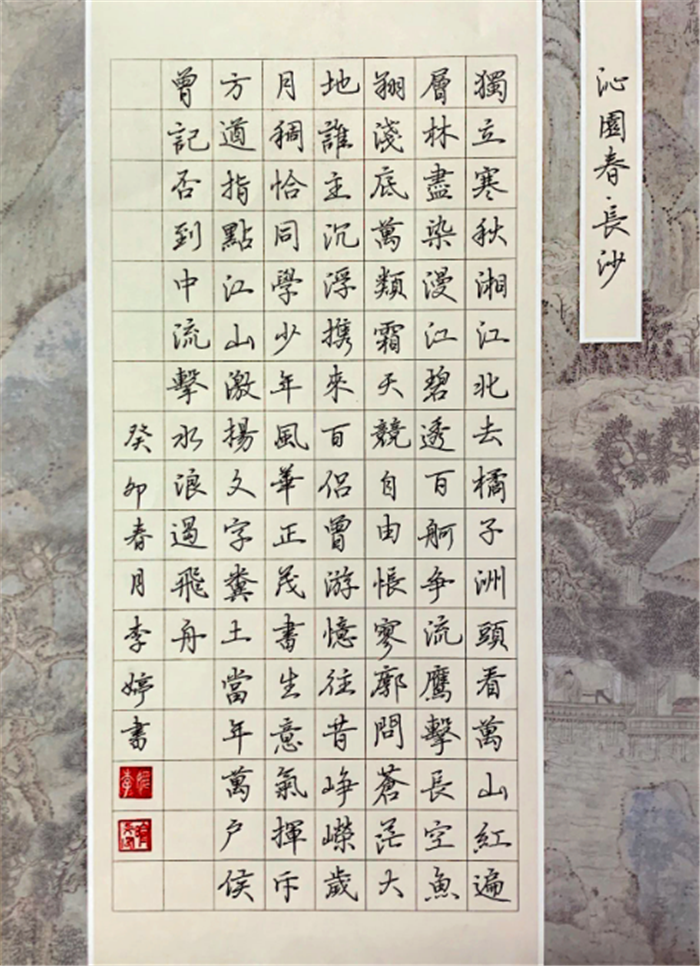 沁園春·長沙
獨立寒秋湘江北去橘子洲頭看萬山紅遍
層林盡染漫江碧透百舸争流鷹擊長空魚
翔淺底萬類霜天競自由悵寥廓問蒼茫大
地誰主沉浮携來百侣曾游憶往昔崢嶸歲
月稠恰同學少年風華正茂書生意氣揮斥
方遒指點江山激揚文字糞土當年萬户侯
曾記否到中流擊水浪遏飛舟
癸卯春月李婷書